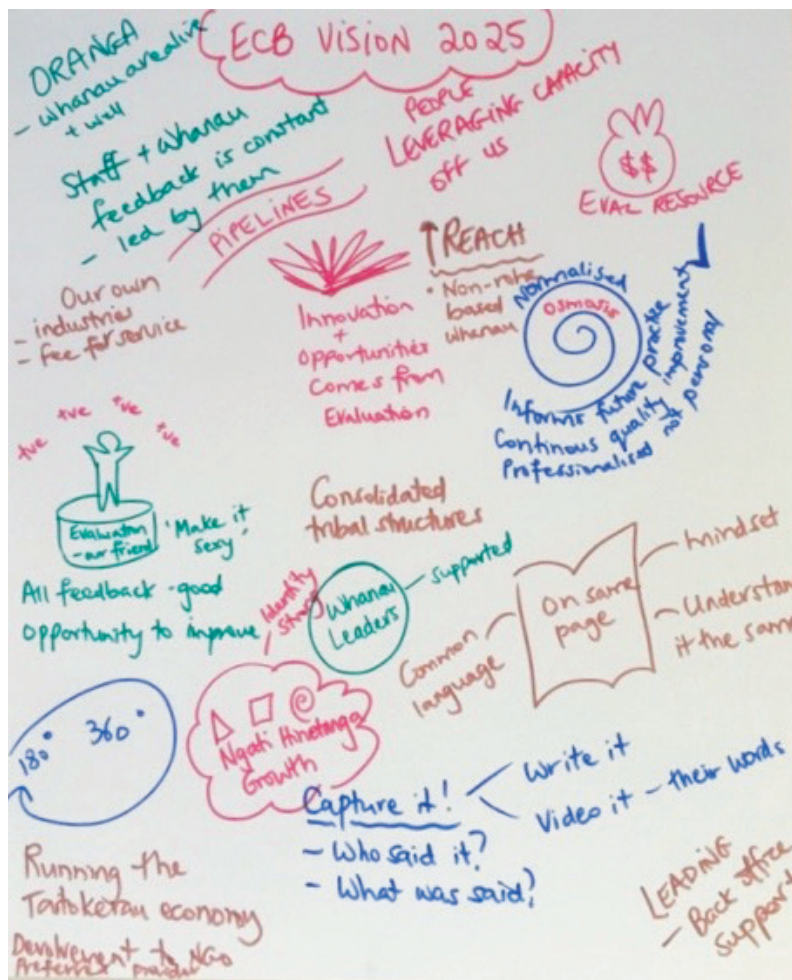 ECB VISION 2025
ORANGA
- whanau are alive
+ well
Staff + whanau
feedback is constant
- led by them
PEOPLE
LEVERAGING CAPACITY
off us
$$
EVAL RESOURCE
PIPELINES
Our own
- industries
- fee for service
Innovation
+
opportunities
comes from
Evaluation
↑REACH
• Non-
based
whanau
Normalised
OSMOSIS
Informs future practice
Continous quality improvement
Professionalised not personal
+ve +ve +ve +ve
Evaluation
- our friend
'Make it
sexy'
All feedback - good
Opportunity to improve
Consolidated
tribal structures
Identity
Strong
Whanau
Leaders
supported
On same
page
mindset
Understan
it the same
Common
language
180° 360°
Ngati Hinetanga
Growth
Capture it!
Write it
Video it - their words
- Who said it?
- What was said?
Running the
Taitokerau economy
Devolvement to NGO
Preferred provider
LEADING
- Back office
support